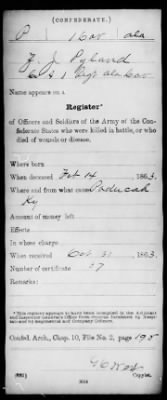 (CONFEDERATE.)
P 1 Cav Ala
F. J. Pyland
Co I, 1 Regt Ala Cav
Name appears on a
Register*
of Officers and Soldiers of the Army of the Con-
federate States who were killed in battle, or who
died of wounds or disease.
Where born
When deceased Feb 14, 1863.
Where and from what cause Paducah
Ky
Amount of money left
Effects
In whose charge
When received Oct 31, 1863.
Number of certificate 37
Remarks:
*This register appears to have been compiled in the Adjutant
and Inspector General's Office from
Confed. Arch., Chap. 10, File No. 2, page 195
Copyist.